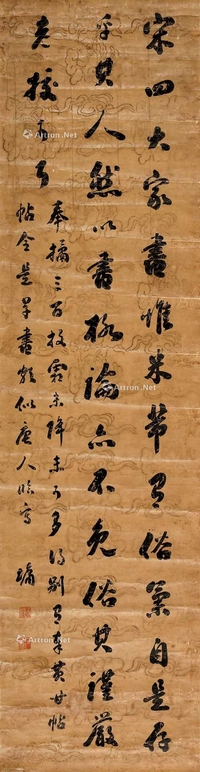 宋四大家書惟米芾有俗氣自是存
乎其人然以書格論亦不免俗其謹嚴
奉橘三百枚霜未降未可多得別有奉黃甘帖
帖今是草書頗似唐人臨寫 墉
Artron.Net
Artron.Net
Artron.Net
Artron.Net